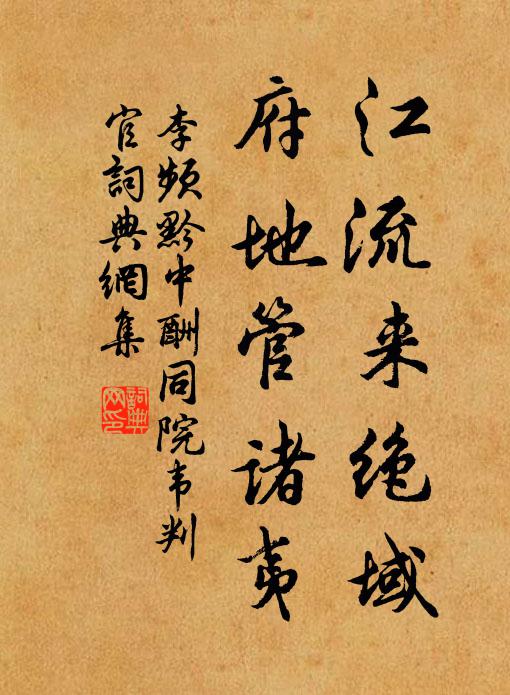 江流来绝域
府地管诸夷
李频黔中酬同院韦判
官词典網集
詞典
网印